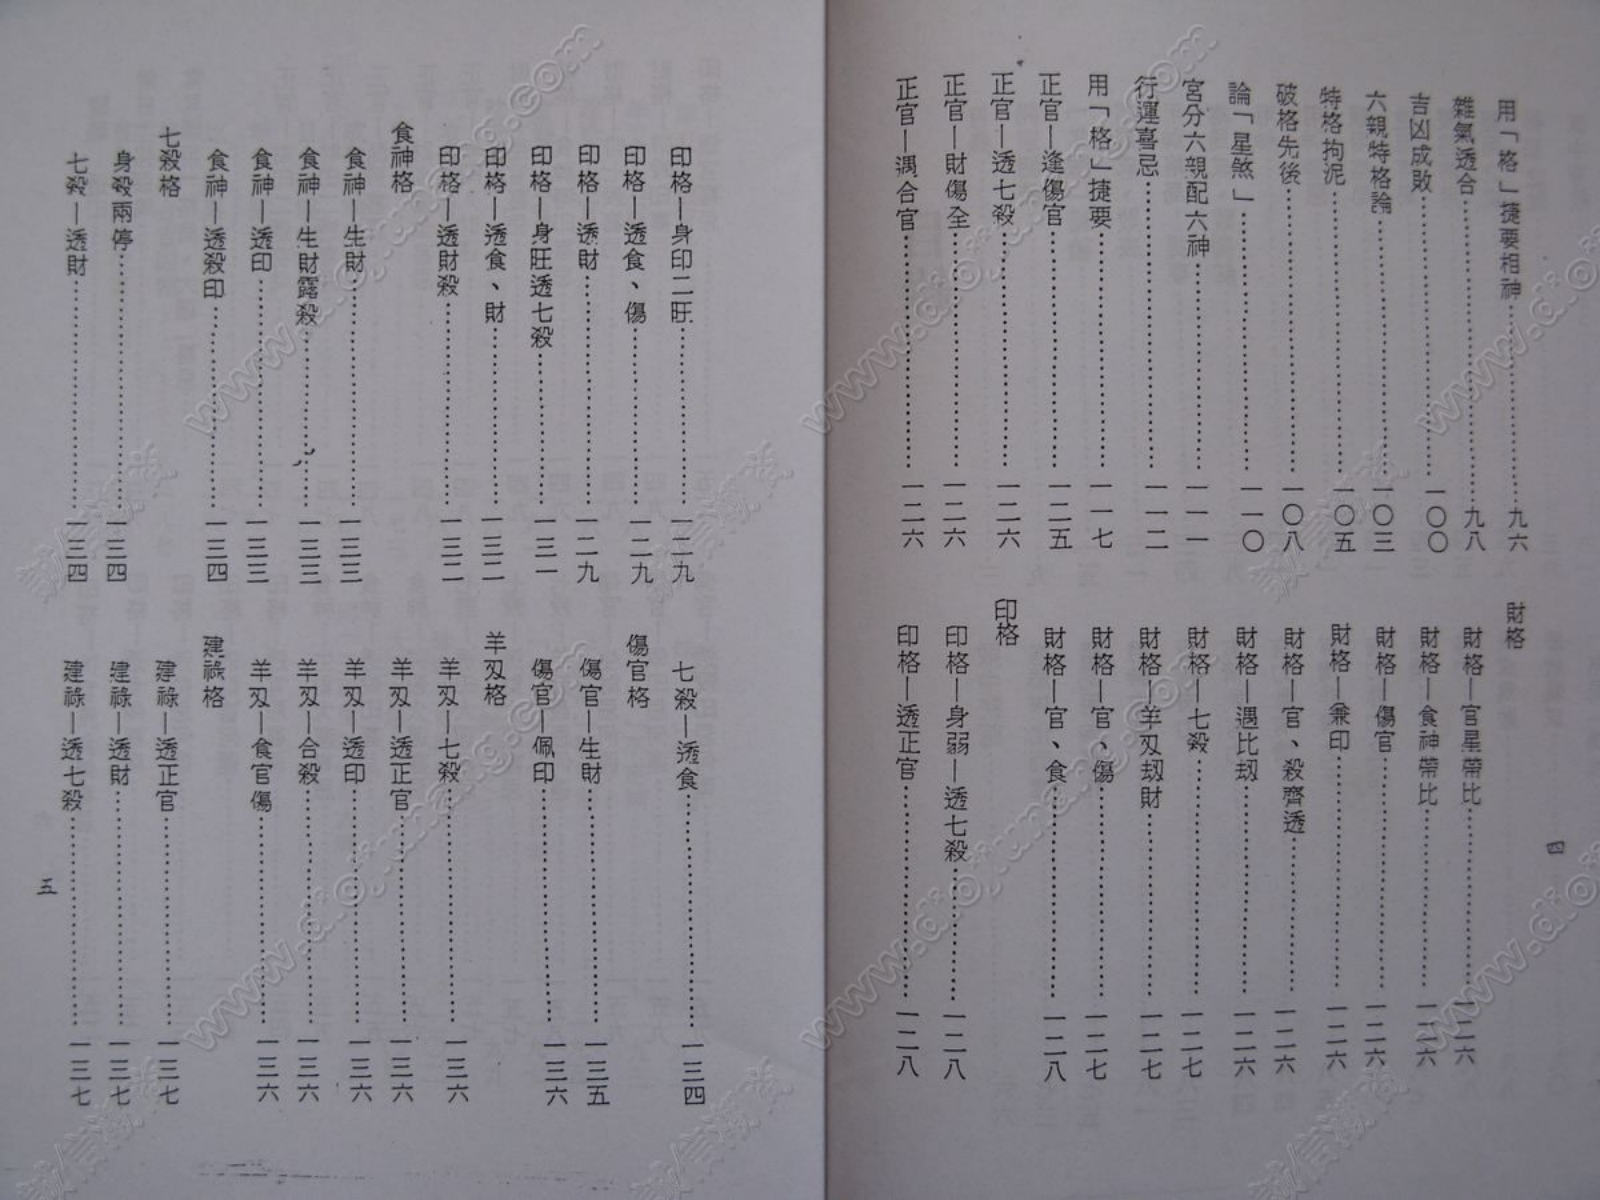 用「格」捷要相神……九六
雜氣透合……九八
吉凶成敗……一〇〇
六親特格論……一〇三
特格拘泥……一〇五
破格先後……一〇八
論「星煞」……一一〇
宮分六親配六神……一一一
行運喜忌……一一二
用「格」捷要……一一七
正官—逢傷官……一二五
正官—透七殺……一二六
正官—財傷全……一二六
正官—遇合官……一二六
財格
財格—官星帶比……一二六
財格—食神帶比……一二六
財格—傷官……一二六
財格—兼印……一二六
財格—官、殺齊透……一二六
財格—遇比刼……一二六
財格—七殺……一二七
財格—羊刃刼財……一二七
財格—官、傷……一二七
財格—官、食……一二八
印格
印格—身弱—透七殺……一二八
印格—透正官……一二八
四
印格—身印二旺……一二九
印格—透食、傷……一二九
印格—透財……一二九
印格—身旺透七殺……一三一
印格—透食、財……一三二
印格—透財殺……一三二
食神格
食神—生財……一三三
食神—生財露殺……一三三
食神—透印……一三三
食神—透殺印……一三四
七殺格
身殺兩停……一三四
七殺—透財……一三四
七殺—透食……一三四
傷官格
傷官—生財……一三五
傷官—佩印……一三六
羊刃格
羊刃—七殺……一三六
羊刃—透正官……一三六
羊刃—透印……一三六
羊刃—合殺……一三六
羊刃—食官傷……一三六
建祿格
建祿—透正官……一三七
建祿—透財……一三七
建祿—透七殺……一三七
五
www.diojiang.com
誠信瀚尚